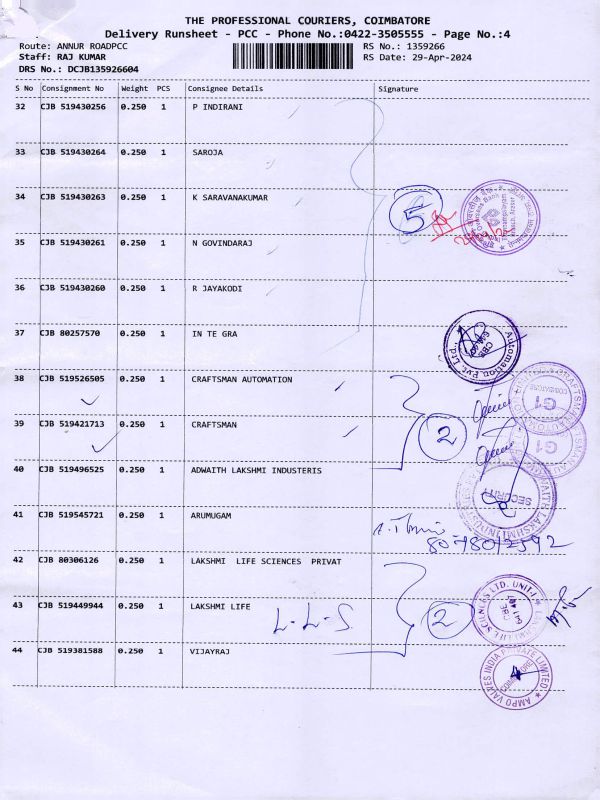 THE PROFESSIONAL COURIERS, COIMBATORE
Delivery Runsheet - PCC - Phone No.:0422-3505555 - Page No.:4
Route: ANNUR ROADPCC RS No.: 1359266
Staff: RAJ KUMAR RS Date: 29-Apr-2024
DRS No.: DCJB135926604
S No Consignment No Weight PCS Consignee Details Signature
32 CJB 519430256 0.250 1 P INDIRANI
33 CJB 519430264 0.250 1 SAROJA
34 CJB 519430263 0.250 1 K SARAVANAKUMAR
5
35 CJB 519430261 0.250 1 N GOVINDARAJ
36 CJB 519430260 0.250 1 R JAYAKODI
37 CJB 80257570 0.250 1 IN TE GRA
Automation Pvt. Ltd.
38 CJB 519526505 0.250 1 CRAFTSMAN AUTOMATION
G1
39 CJB 519421713 0.250 1 CRAFTSMAN
2
G1
40 CJB 519496525 0.250 1 ADWAITH LAKSHMI INDUSTERIS
SECURITY
41 CJB 519545721 0.250 1 ARUMUGAM
42 CJB 80306126 0.250 1 LAKSHMI LIFE SCIENCES PRIVAT
43 CJB 519449944 0.250 1 LAKSHMI LIFE
L-L-S
2
LAKSHMI LIFE SCIENCES LTD. UNIT-I
44 CJB 519381588 0.250 1 VIJAYRAJ
AMPO VALVES INDIA PRIVATE LIMITED